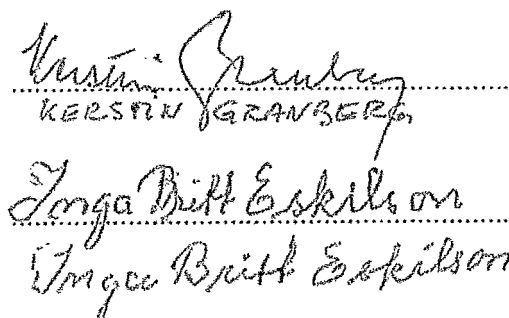 Kerstin Granberg
KERSTIN GRANBERG
Inga Britt Eskilson
Inga Britt Eskilson